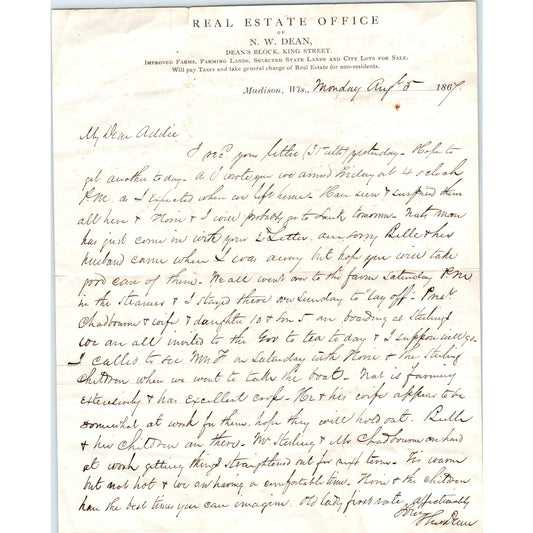 REAL ESTATE OFFICE
OF
N. W. DEAN,
DEAN'S BLOCK, KING STREET.
IMPROVED FARMS, FARMING LANDS, SELECTED STATE LANDS AND CITY LOTS FOR SALE.
Will pay Taxes and take general charge of Real Estate for non-residents.
Madison, Wis., Monday Augt 5 1867
My Dear Addie
I recd your letter yesterday - Hope to
get another to day - As I wrote you we arrived Friday at 4 oclock
P.M. as I expected when we left home - Have seen & surprised them
all here & & I will probably go to Sauk tomorrow - man
has just come in with your 2d Letter. am sorry Belle & her
husband came when I was away but hope you will take
good care of them. We all went over to the farm Saturday P.M.
in the Steamer & I stayed there over Sunday to "lay off" -
Chadbourne & wife & daughter 10 & Son 5 are boarding at Sterlings
we are all invited to the Gov to tea to day & I suppose will go.
I called to see on Saturday with & the Sterling
children when we went to take the boat - Nat is farming
extensively & has excellent crops - He & his wife appear to be
somewhat at work for them. hope they will hold out. Belle
& her children are there - Mr Sterling & Mr Chadbourne are hard
at work getting things straightened out for next term - Tis warm
but not hot & we are having a comfortable time. & the children
have the best time you can imagine. Old lady first rate affectionately